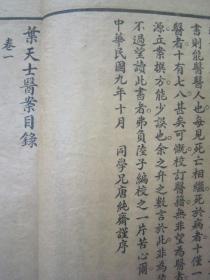 書則能醫醫人也每見死亡相繼死於病者十僅一
醫者十有七八甚矣可慨校訂醫籍無非望為醫者
源立案撰方能少誤也余之升之數言於此非為
不過望讀此書者弗負陸子編校之一片苦心爾
中華民國九年十月　同學兄唐純齋謹序
葉天士醫案目錄
卷一